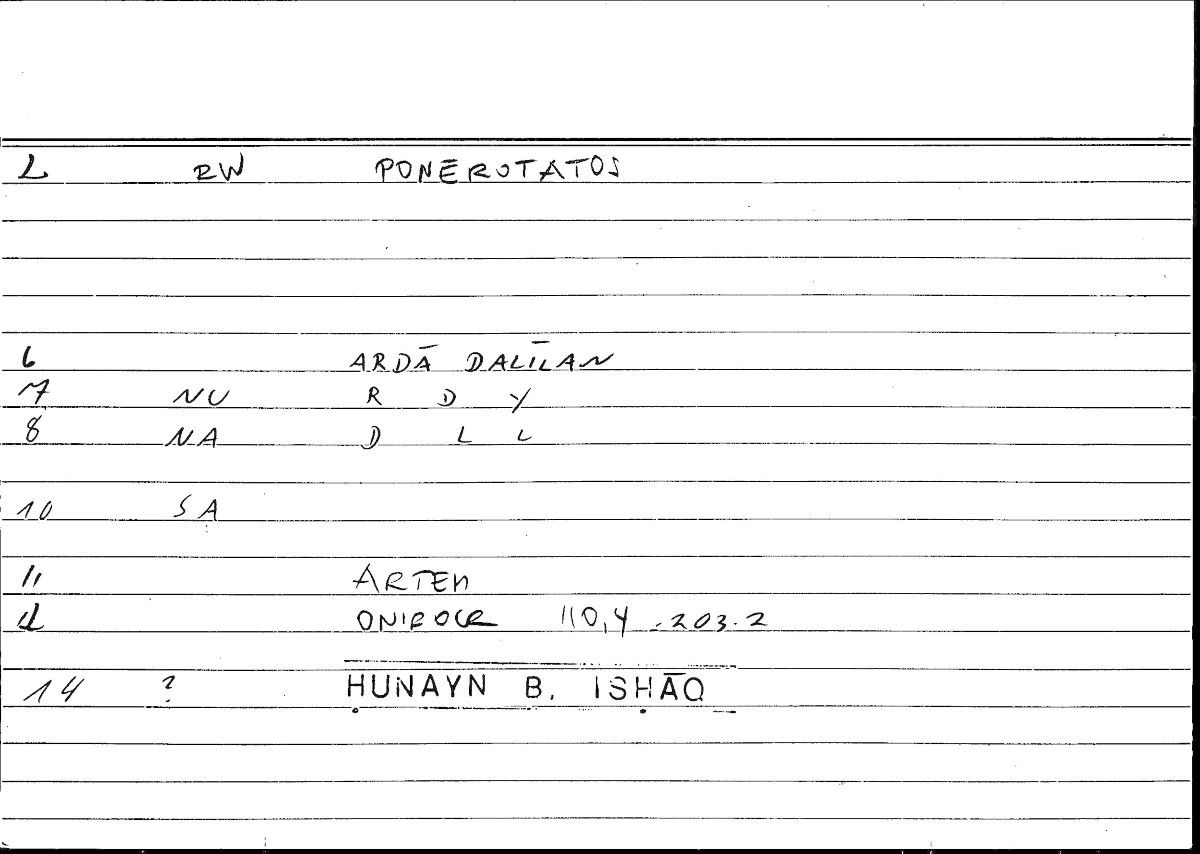 2 RW PONĒROTATOS
6 ARDĀ DALĪLAN
7 NU R D Y
8 NA D L L
10 SA
11 ARTEM
12 ONIROCR 110,4 - 203.2
14 ? ḤUNAYN B. ISḤĀQ